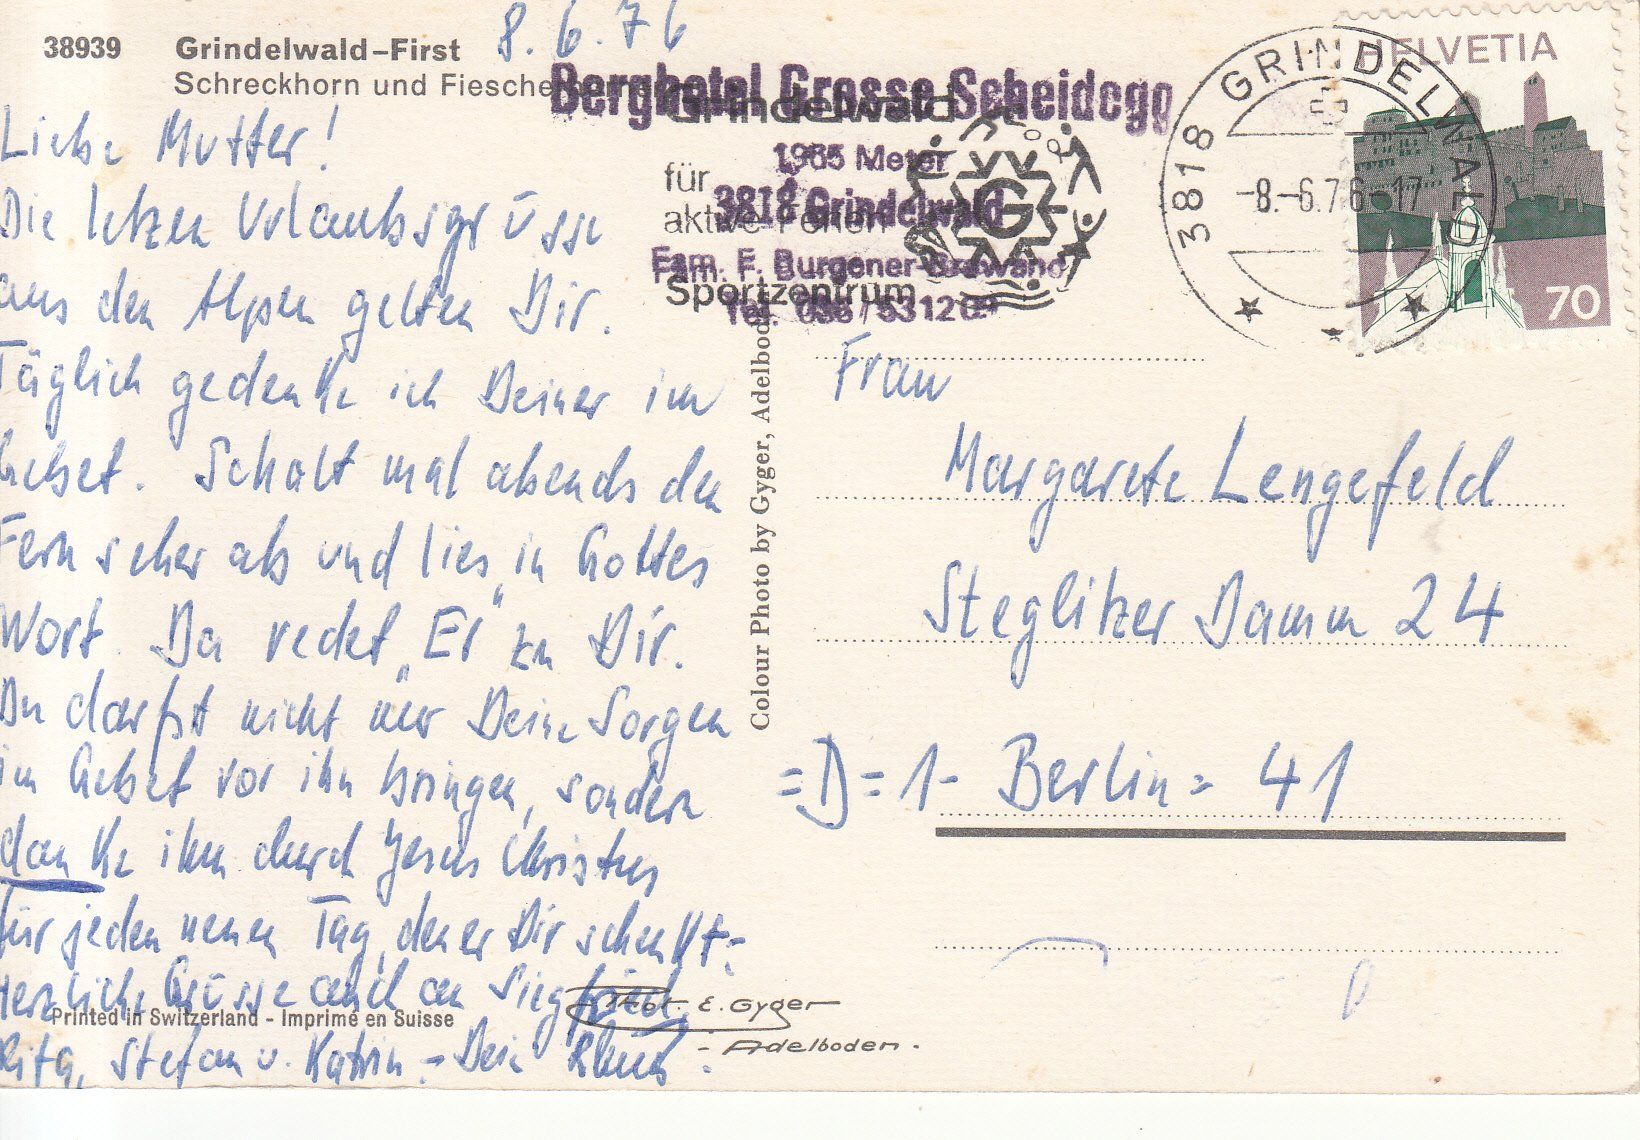 8.6.76
38939 Grindelwald-First
Schreckhorn und Fiesche
Liebe Mutter!
Die letzen Urlaubsgrüsse
aus den Alpen gelten Dir.
Täglich gedenke ich Deiner im
Gebet. Schalt mal abends den
Fernseher ab und lies in Gottes
Wort. Da redet „Er" zu Dir.
Du darfst nicht nur Deine Sorgen
im Gebet vor ihn bringen, sondern
danke ihm durch Jesus Christus
für jeden neuen Tag, den er Dir schenkt.-
Herzliche Grüsse auch an Siegfried,
Rita, Stefan u. Katrin.- Dein Klaus.
Printed in Switzerland - Imprimé en Suisse
Phot. E. Gyger
- Adelboden.
Colour Photo by Gyger, Adelboden
Berghotel Grosse Scheidegg
1965 Meter
3818 Grindelwald
Fam. F. Burgener-Brawand
Tel. 036 / 531209
Grindelwald
für
aktive Ferien
Sportzentrum
G
3818 GRINDELWALD
-8.-6.76-17
HELVETIA
70
Frau
Margarete Lengefeld
Steglitzer Damm 24
=D= 1- Berlin = 41